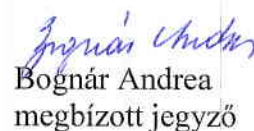 Bognár Andrea
Bognár Andrea
megbízott jegyző